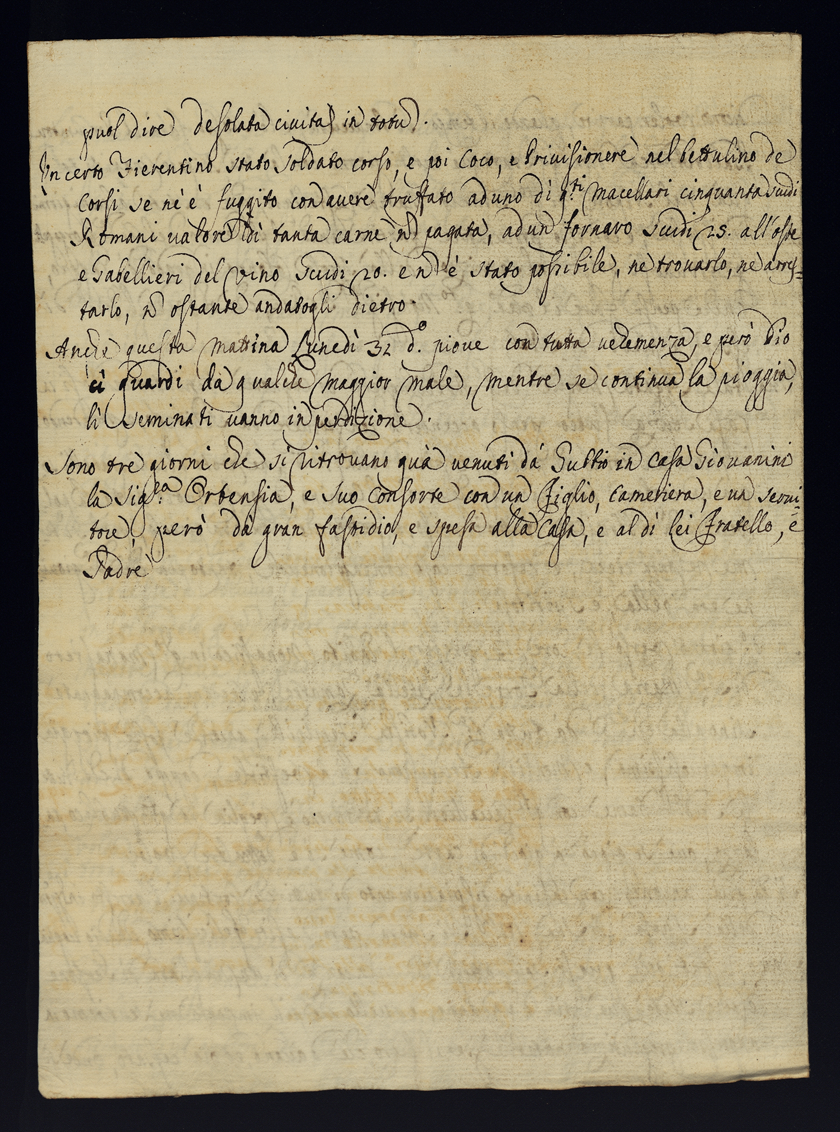 puol dire desolata civitas in totu).
Un certo Fierentino stato soldato corso, e poi Coco, e Privisionere nel Bettulino de
Corsi se nè è fuggito con avere truffato ad uno di q.ti Macellari cinquanta Scudi
Romani valore di tanta carne nõ pagata, ad un fornaro Scudi 25. all'oste
e Gabellieri del vino Scudi 20. e nõ è stato possibile, ne trovarlo, ne arres=
tarlo, nõ ostante andatogli dietro.
Anche questa mattina Lunedì 31 d.o piove con tutta vehemenza, e però Dio
ci guardi da qualche maggior male, mentre se continua la pioggia,
li seminati vanno in perdizione.
Sono tre giorni che si ritrovano quà venuti dà Gubbio in casa Giovanini
la Sig.ra Ortensia, e suo consorte con un figlio, cameriera, e un servi=
tore, però dà gran fastidio, e spesa alla Casa, e al di lei Fratello, e
Padre